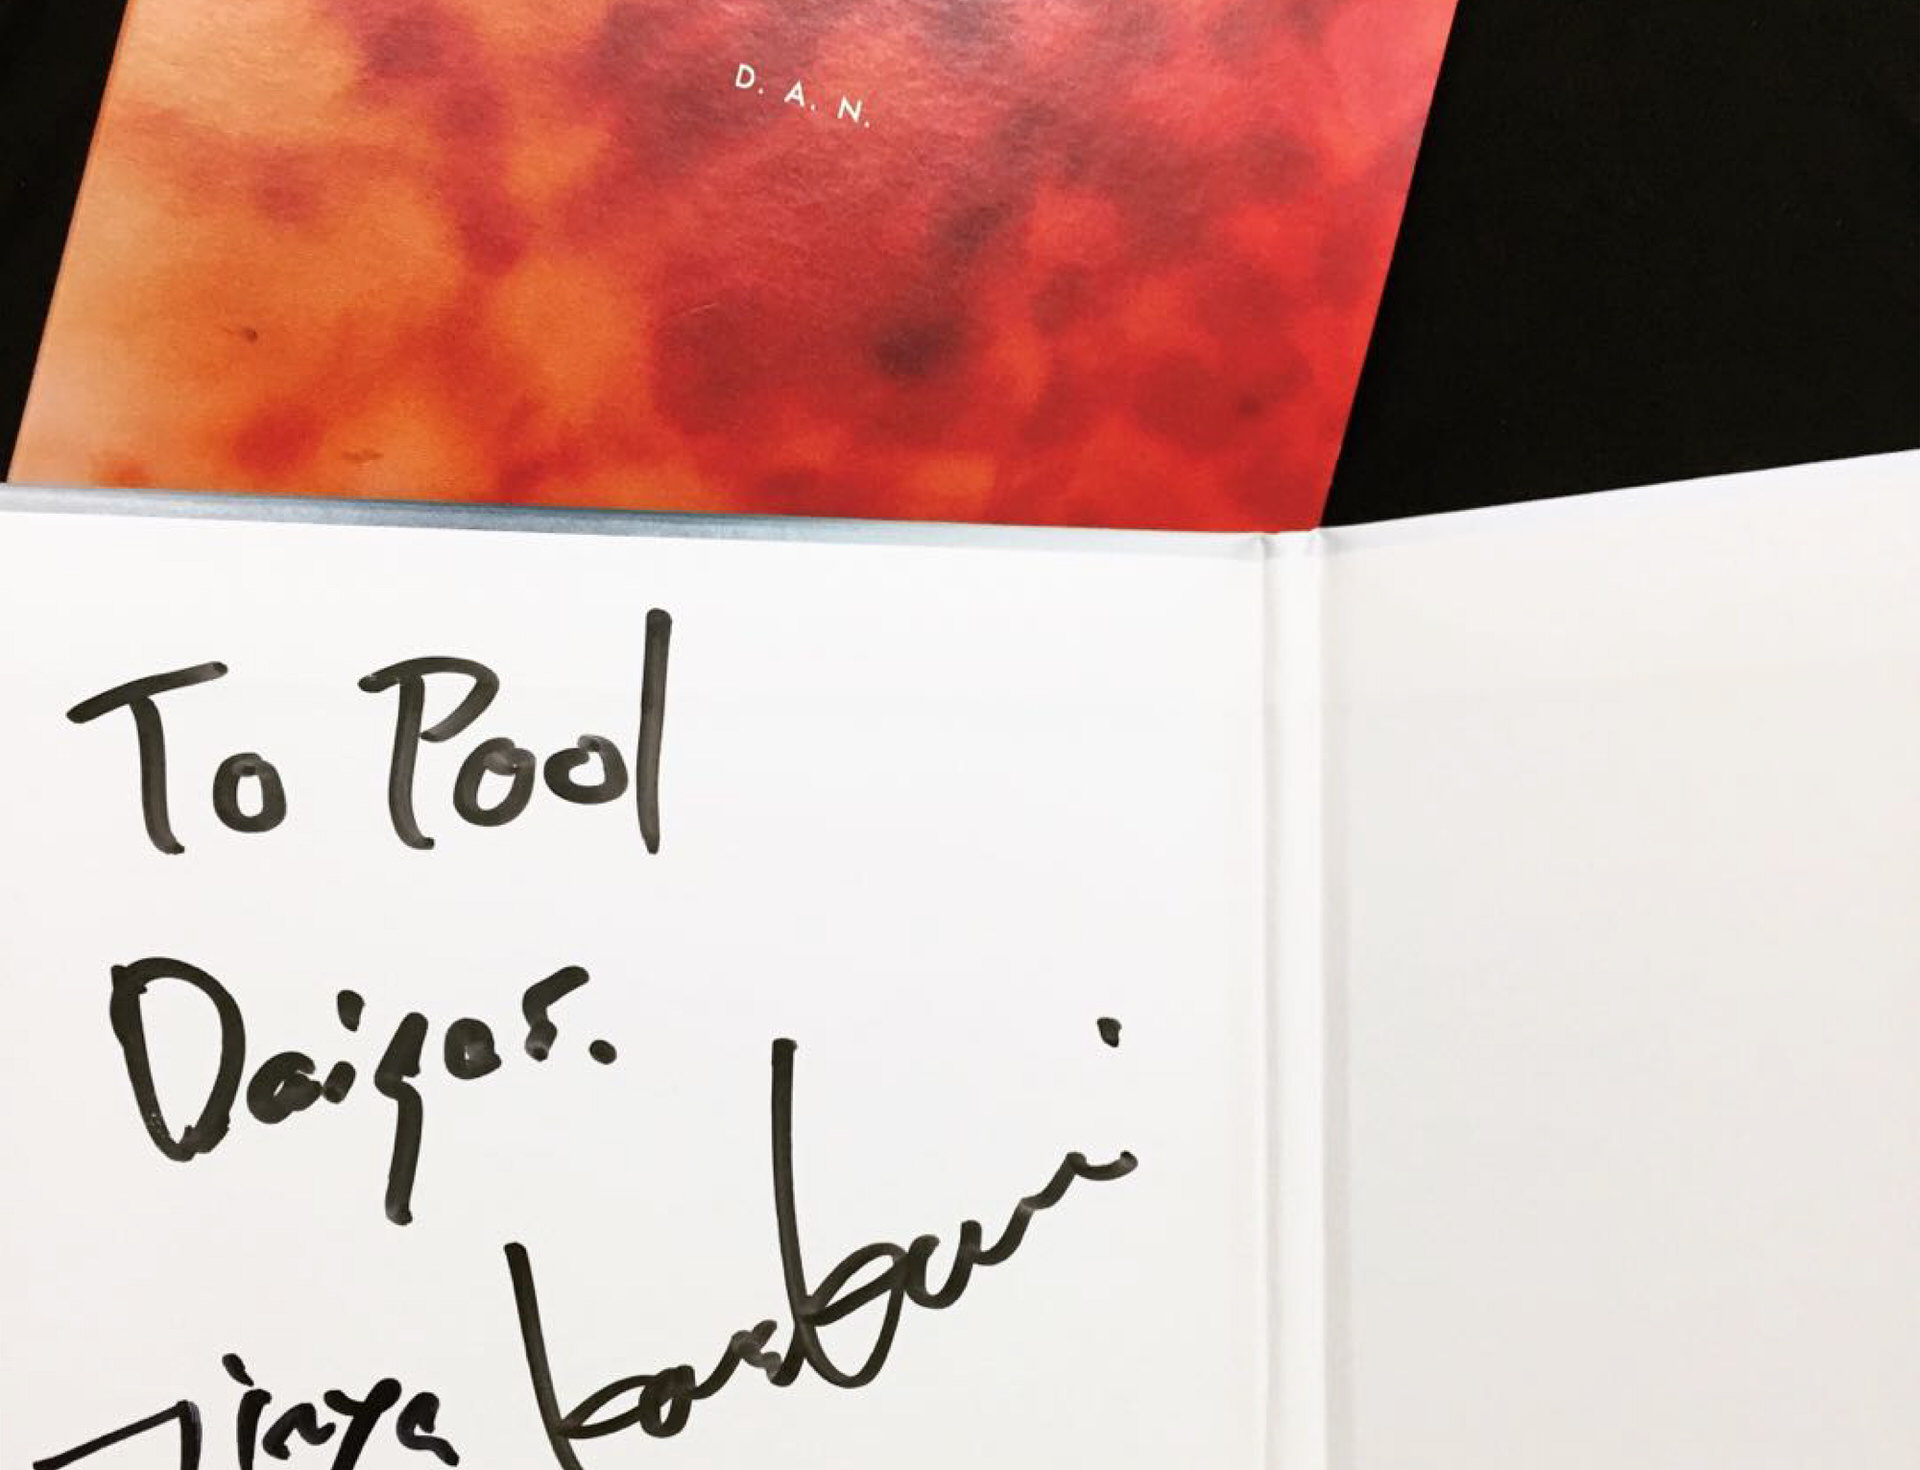 D. A. N.
To Pool
Daigos.
Jinya